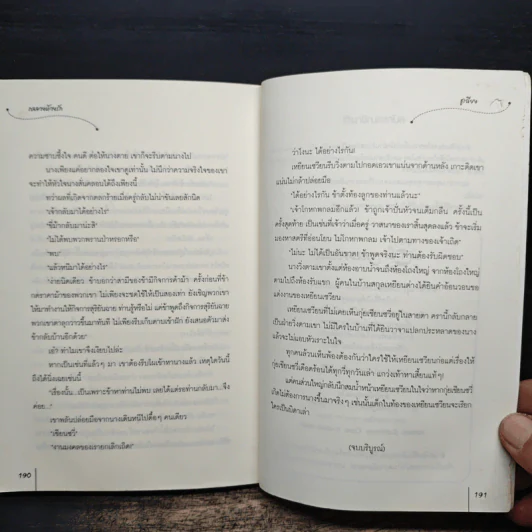 ความซาบซึ้งใจ คนดี ต่อให้นางตาย เขาก็จะรีบตามนางไป
นางเพียงแค่อยากลองใจเขาดูเท่านั้น ไม่นึกว่าความจริงใจของเขา
จะทำให้หัวใจนางสั่นคลอนได้ถึงเพียงนี้
ทว่าผลที่เกิดจากตลกร้ายเมื่อครู่กลับไม่น่าขันเลยสักนิด
"เจ้ากลับมาได้อย่างไร"
"ขี่ม้ากลับมาน่ะสิ"
"ไม่ได้พบพวกพรานป่าหรอกหรือ"
"พบ"
"แล้วหนีมาได้อย่างไร"
"ง่ายนิดเดียว ข้าบอกว่าสามีของข้ามีกิจการค้าม้า ครั้งก่อนที่ข้า
กดราคาม้าของพวกเขา ไม่เพียงจะชดใช้ให้เป็นสองเท่า ยังเชิญพวกเขา
ให้มาทำงานให้กิจการสุริยันฉาย ท่านรู้หรือไม่ แค่ข้าพูดถึงกิจการสุริยันฉาย
พวกเขาตาลุกวาวขึ้นมาทันที ไม่เพียงรีบเก็บดาบเข้าฝัก ยังเสนอตัวมาส่ง
ข้ากลับบ้านอีกด้วย"
เอ๋? ทำไมเขาจึงเงียบไปล่ะ
หากเป็นเช่นที่แล้วๆ มา เขาต้องรีบโผเข้าหานางแล้ว เหตุใดวันนี้
ถึงได้นิ่งเฉยเช่นนี้
"เรื่องนั้น...เป็นเพราะข้าหาท่านไม่พบ เลยได้แต่รอท่านกลับมา...จึง
ค่อย..."
เขาพลันปล่อยมือจากนางเดินหนีไปดื้อๆ คนเดียว
"เชียนชวี่"
"งานมงคลของเรายกเลิกเถิด!"
190
ว่าไงนะ ได้อย่างไรกัน!
เหยียนเชวียนรีบวิ่งตามไปกอดเอวเขาแน่นจากด้านหลัง เกาะติดเขา
แน่นไม่กล้าปล่อยมือ
"ได้อย่างไรกัน ข้าตั้งท้องลูกของท่านแล้วนะ"
"เจ้าโกหกพกลมอีกแล้ว! ข้าถูกเจ้าปั่นหัวจนเต็มกลืน ครั้งนี้เป็น
ครั้งสุดท้าย เป็นเช่นที่เจ้าว่าเมื่อครู่ วาสนาของเราสิ้นสุดลงแล้ว ข้าจะเริ่ม
มองหาสตรีที่อ่อนโยน ไม่โกหกพกลม เจ้าไปตามทางของเจ้าเถิด"
"ไม่นะ ไม่ได้เป็นอันขาด! ข้าพูดจริงนะ ท่านต้องรับผิดชอบ"
นางวิ่งตามเขาตั้งแต่ห้องอาบน้ำจนถึงห้องโถงใหญ่ จากห้องโถงใหญ่
ตามไปถึงห้องรับแขก ผู้คนในบ้านสกุลเหยียนต่างได้ยินคำอ้อนวอนขอ
แต่งงานของเหยียนเชวียน
เหยียนเชวียนที่ไม่เคยเห็นกุ่ยเชียนชวี่อยู่ในสายตา คราวนี้กลับกลาย
เป็นฝ่ายวิ่งตามเขา ไม่มีใครในบ้านที่ได้ยินวาจาแปลกประหลาดของนาง
แล้วจะไม่แอบหัวเราะในใจ
ทุกคนล้วนเห็นพ้องต้องกันว่าใครใช้ให้เหยียนเชวียนก่อแต่เรื่องให้
กุ่ยเชียนชวี่เดือดร้อนได้ทุกวี่ทุกวันเล่า แกว่งเท้าหาเสี้ยนแท้ๆ!
แต่คนส่วนใหญ่กลับนึกสมน้ำหน้าเหยียนเชวียนในใจว่าหากกุ่ยเชียนชวี่
เกิดไม่ต้องการนางขึ้นมาจริงๆ เช่นนั้นเด็กในท้องของเหยียนเชวียนจะเรียก
ใครเป็นบิดาเล่า
(จบบริบูรณ์)
191